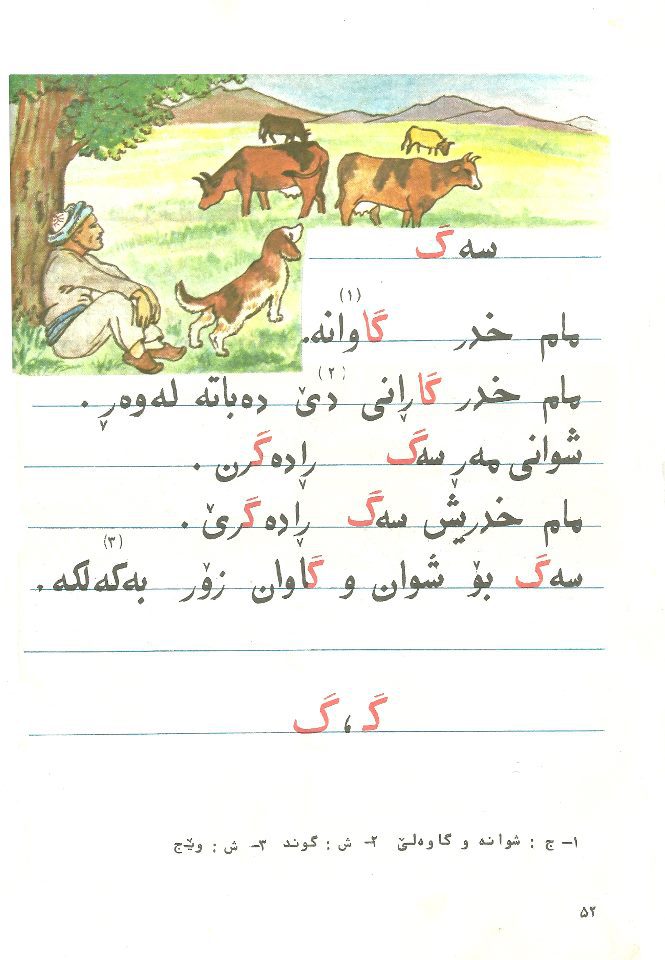 سەگ
مام خدر گاوانە. (١)
مام خدر گاڕانی دێ (٢) دەباتە لەوەڕ.
شوانی مەڕ سەگ ڕادەگرن.
مام خدریش سەگ ڕادەگرێ.
سەگ بۆ شوان و گاوان زۆر بەکەلکە. (٣)
گـ ، گ
١- ج : شوانە و گاوەلێ ٢- ش : گوند ٣- ش : وێج
٥٢